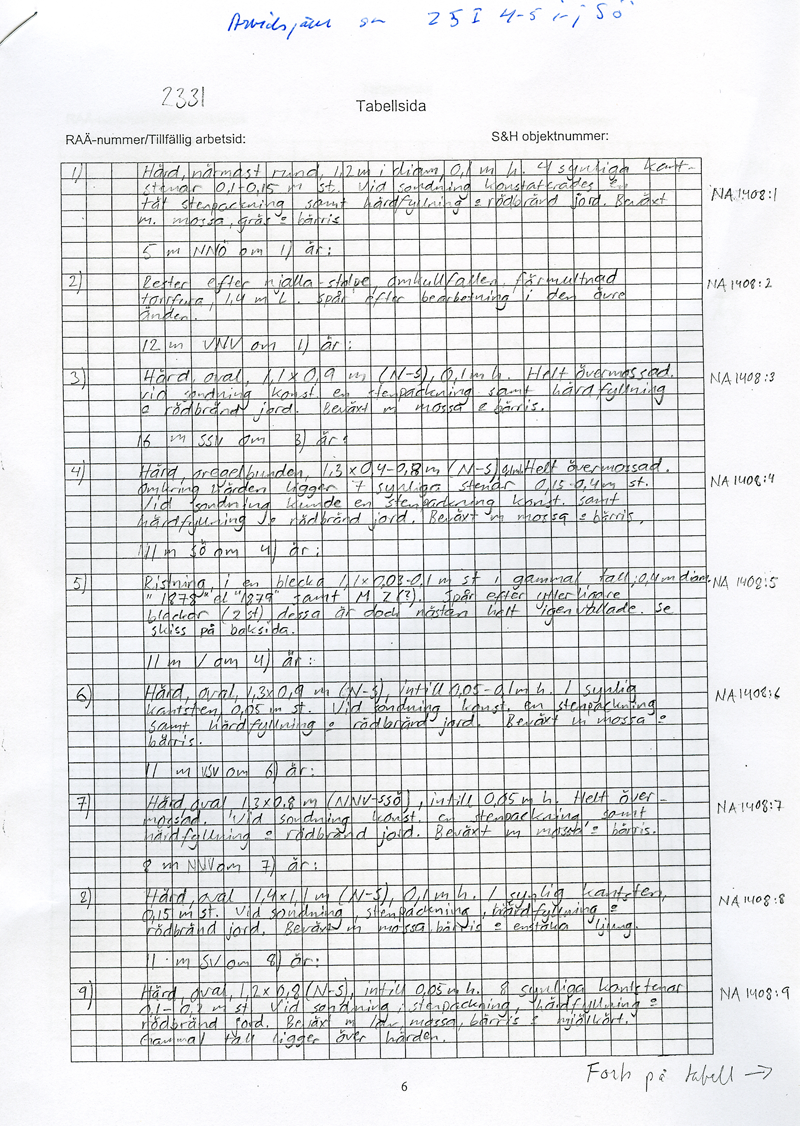 Arvidsjaur sn 25I 4-5 i-j SÖ
2331
Tabellsida
RAÄ-nummer/Tillfällig arbetsid: S&H objektnummer:
1) Härd, närmast rund, 1,2 m i diam, 0,1 m h. 4 synliga kant-
stenar 0,1-0,15 m st. Vid sondning konstaterades en NA1408:1
tät stenpackning samt härdfyllning o rödbränd jord. Beväxt
m. mossa, gräs o bärris
5 m NNÖ om 1) är:
2) Rester efter njalla-stolpe, omkullfallen, förmultnad NA1408:2
torrfura, 1,4 m l. Spår efter bearbetning i den övre
änden.
12 m VNV om 1) är:
3) Härd, oval, 1,1x0,9 m (N-S), 0,1 m h. Helt övermossad. NA1408:3
Vid sondning konst. en stenpackning samt härdfyllning
o rödbränd jord. Beväxt m mossa o bärris.
16 m SSV om 3) är:
4) Härd, oregelbunden, 1,3x0,4-0,8 m (N-S) Helt övermossad. NA1408:4
Omkring härden ligger synliga stenar 0,15-0,4 m st.
Vid sondning kunde en stenpackning konst. samt
härdfyllning o rödbränd jord. Beväxt m mossa o bärris.
11 m SÖ om 4) är:
5) Ristning, i en blecka 1,1x0,03-0,1 m st i gammal tall, 0,4 m diam. NA1408:5
"1878" el "1879" samt M Z(?). Spår efter ytterligare
bleckor (2 st) dessa är dock nästan helt igenvallade. Se
skiss på baksida.
11 m V om 4) är:
6) Härd, oval, 1,3x0,9 m (N-S), intill 0,05-0,1 m h. 1 synlig NA1408:6
kantsten, 0,05 m st. Vid sondning konst. en stenpackning
samt härdfyllning o rödbränd jord. Beväxt m mossa o
bärris.
11 m VSV om 6) är:
7) Härd, oval 1,3x0,8 m (NNV-SSÖ), intill 0,05 m h. Helt över- NA1408:7
mossad. Vid sondning konst. en stenpackning, samt
härdfyllning o rödbränd jord. Beväxt m mossa o bärris.
8 m NNV om 7) är:
8) Härd, oval 1,4x1,1 m (N-S), 0,1 m h. 1 synlig kantsten, NA1408:8
0,15 m st. Vid sondning, stenpackning, härdfyllning o
rödbränd jord. Beväxt m mossa, bärris o enstaka ljung.
11 m SV om 8) är:
9) Härd, oval, 1,2x0,8 (N-S), intill 0,05 m h. 8 synliga kantstenar NA1408:9
0,1-0,2 m st. Vid sondning, stenpackning, härdfyllning o
rödbränd jord. Beväxt m lav, mossa, bärris o mjölkört.
Gammal tall ligger över härden.
Forts på tabell →
6